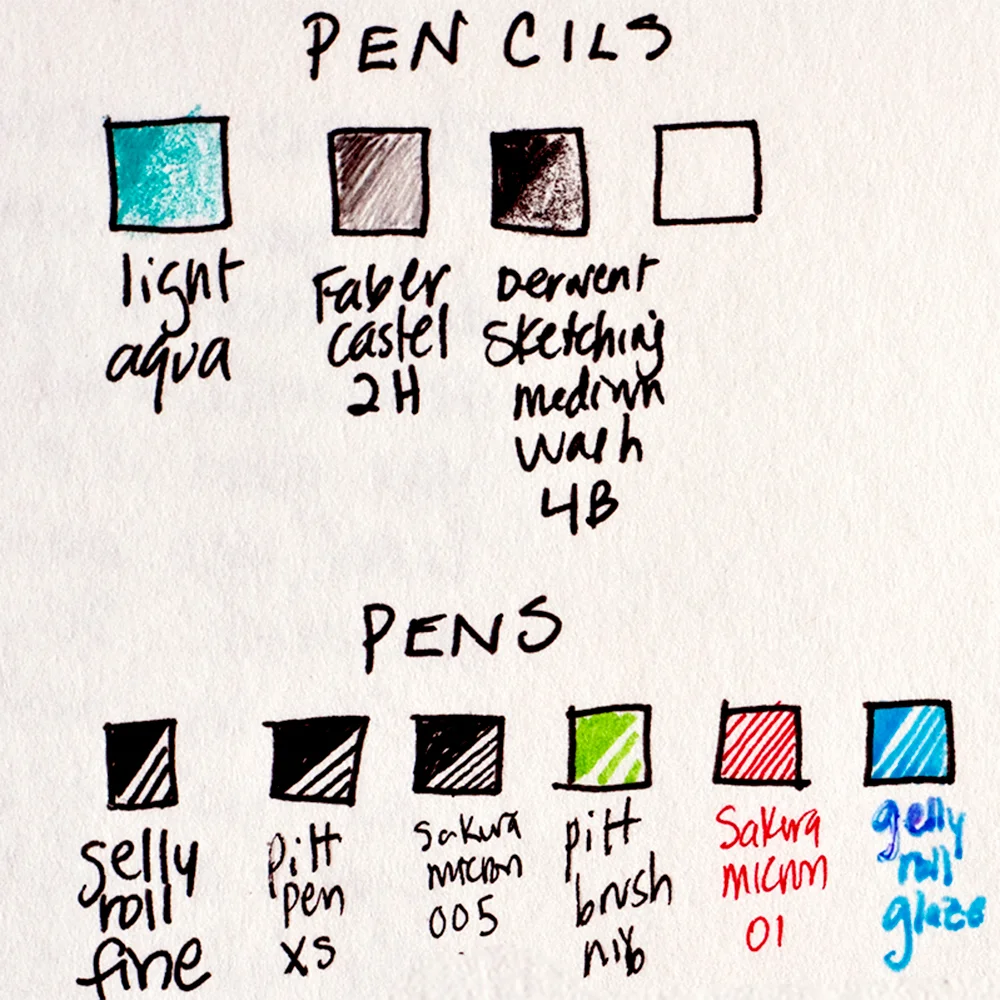 PENCILS
light
aqua
Faber
Castel
2H
Derwent
Sketching
medium
wash
4B
PENS
gelly
roll
fine
pitt
pen
xs
Sakura
micron
005
pitt
brush
nib
Sakura
micron
01
gelly
roll
glaze